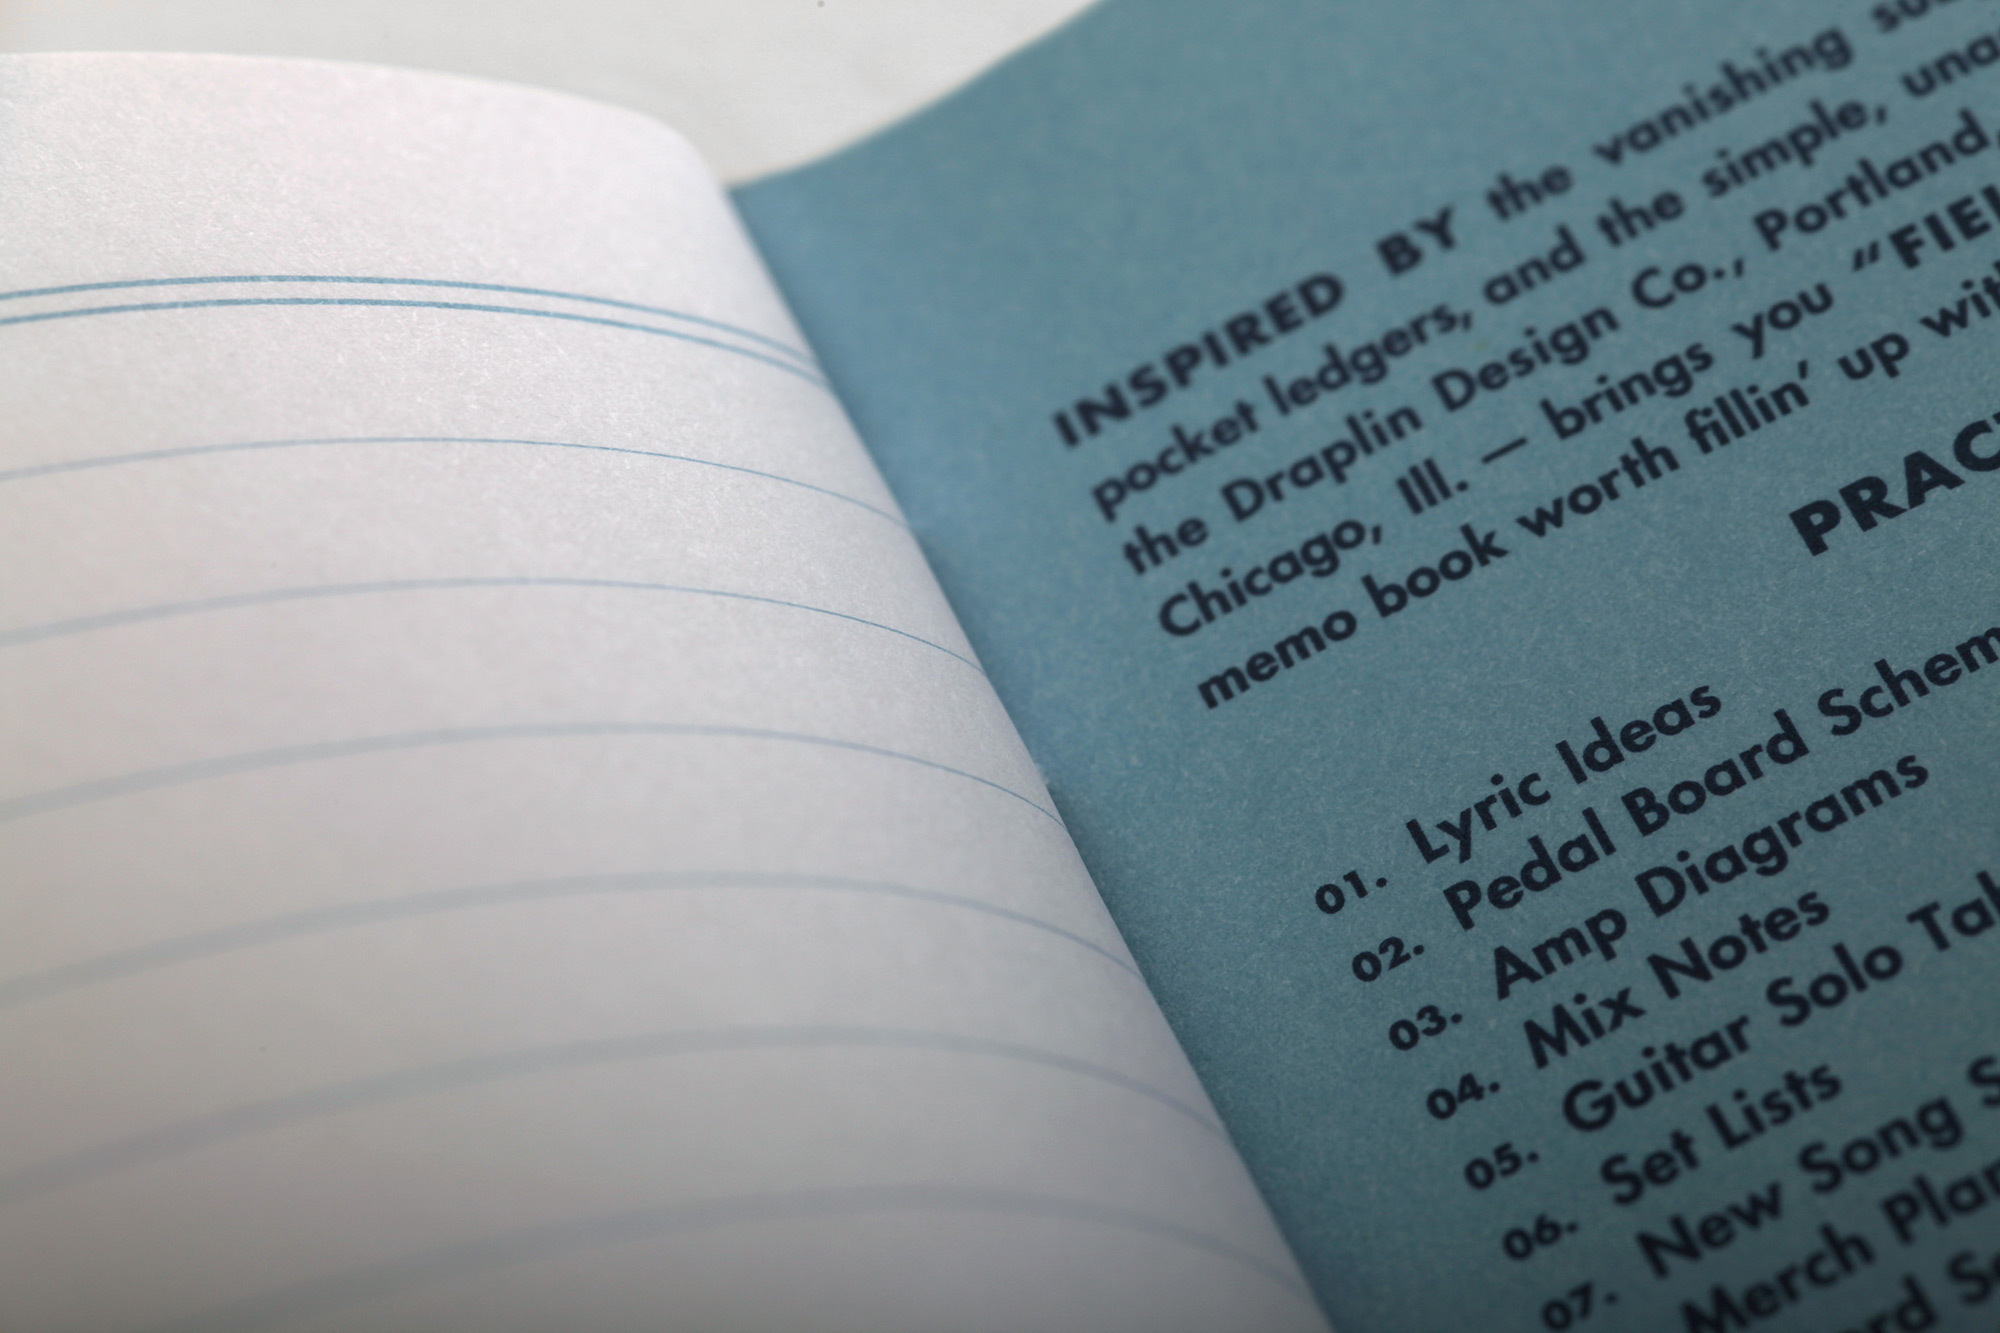 INSPIRED BY the vanishing
pocket ledgers, and the simple,
the Draplin Design Co., Portland,
Chicago, Ill. — brings you "FIEL
memo book worth fillin' up wit
PRAC
01. Lyric Ideas
02. Pedal Board Schem
03. Amp Diagrams
04. Mix Notes
05. Guitar Solo Tab
06. Set Lists
07. New Song S
Merch Plan